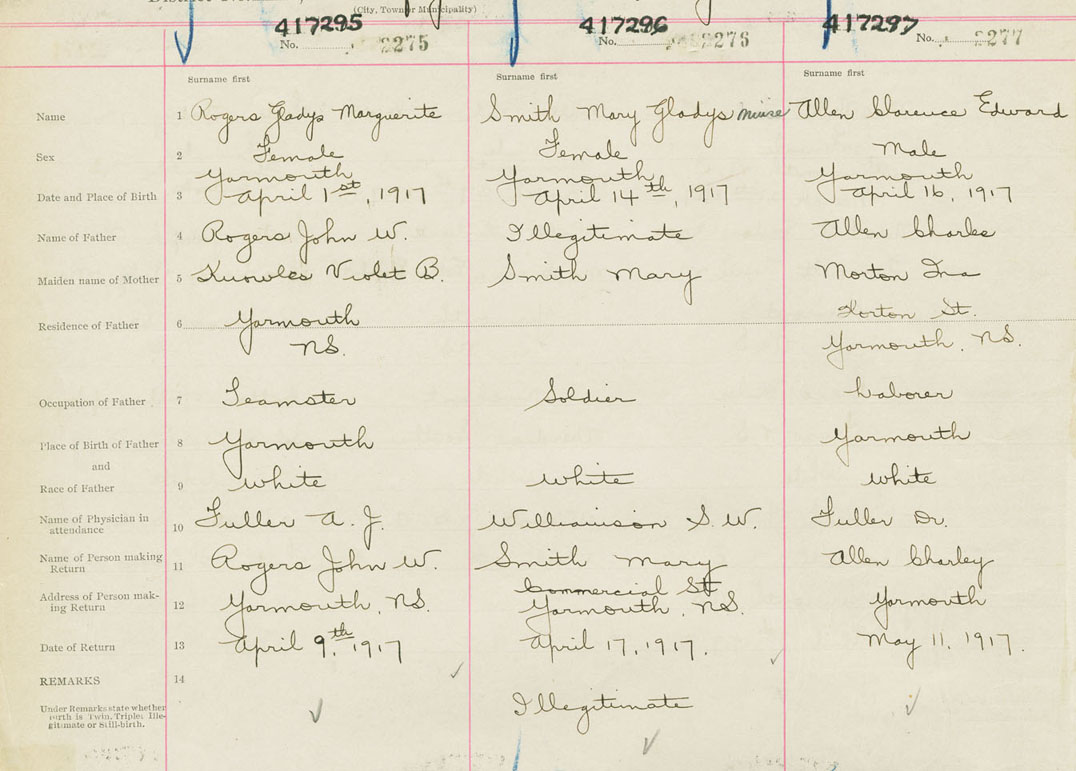 (City, Town or Municipality)
417295 417296 417297
No. 2275 No. 2276 No. 2277
Surname first Surname first Surname first
Name 1 Rogers Gladys Marguerite Smith Mary Gladys Muise Allen Clarence Edward
Sex 2 Female Female Male
Yarmouth Yarmouth Yarmouth
Date and Place of Birth 3 April 1st, 1917 April 14th, 1917 April 16, 1917
Name of Father 4 Rogers John W. Illegitimate Allen Charles
Maiden name of Mother 5 Knowles Violet B. Smith Mary Morton Ina
Residence of Father 6 Yarmouth Horton St.
NS. Yarmouth, NS.
Occupation of Father 7 Teamster Soldier Laborer
Place of Birth of Father 8 Yarmouth Yarmouth
and
Race of Father 9 white white white
Name of Physician in
attendance 10 Fuller A. J. Williamson S. W. Fuller Dr.
Name of Person making
Return 11 Rogers John W. Smith Mary Allen Charley
Commercial St
Address of Person mak-
ing Return 12 Yarmouth, NS. Yarmouth, NS. Yarmouth
Date of Return 13 April 9th, 1917 April 17, 1917. May 11, 1917.
REMARKS 14
Under Remarks state whether
birth is Twin, Triplet Ille-
gitimate or Still-birth.
Illegitimate